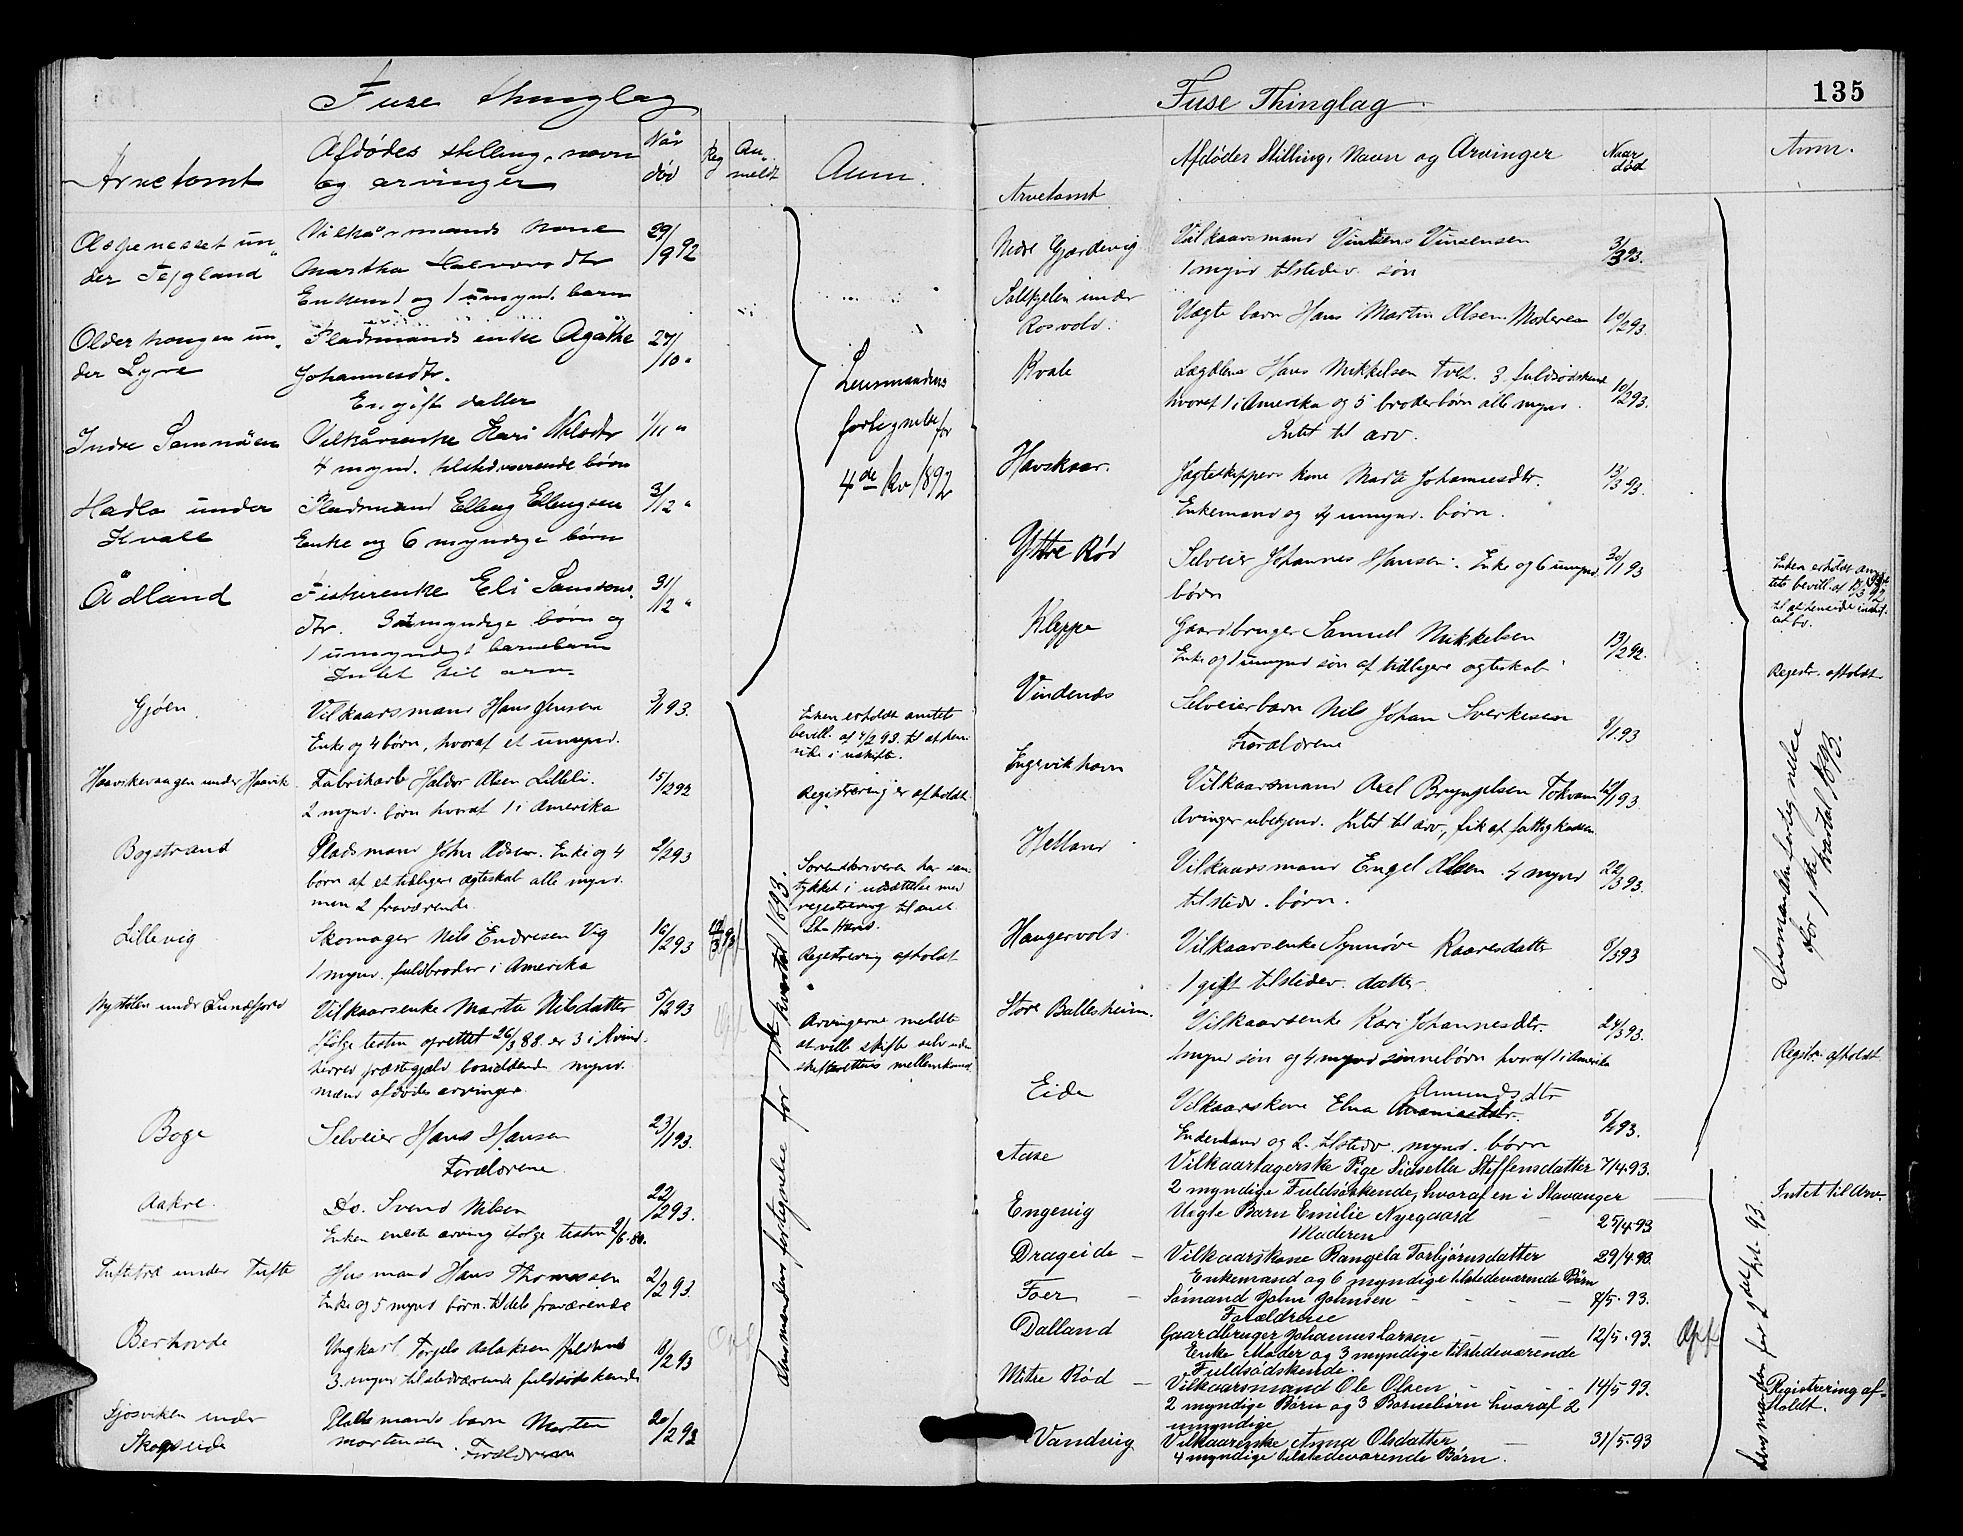 Fuse thinglag
Arvetomt
Afdødes stilling, navn
og arvinger
Når
død
Reg
An-
meldt
Anm.
un-
der Tejgland
Vilkårsmands kone
Martha Halvorsdtr
Enkemd og 1 umynd. barn
29/9 92
Olderhaugen un-
der Lyre
Pladsmands enke Agathe
Johannesdtr.
En gift datter
27/10 "
Indre Samnöen
Vilkårsenke Kari Nilsdtr
4 mynd. tilstedværende børn
1/11 "
Hadla under
Kvale
Pladsmand Elling Ellingsen
Enke og 6 myndige børn
3/12 "
Ådland
Fiskerenke Eli Samsons
dtr. 3 myndige børn og
1 umyndigt barnebarn
Intet til arv
31/12 "
Lensmandens
fortegnelse for
4de Kv 1892
Gjøen
Vilkaarsmand Hans Jensen
Enke og 4 børn, hvoraf et umynd.
3/1 93.
Enken erholdt amtets
bevill. af 4/2 93 til at hen-
side i uskifte.
Haavikevaagen under Haavik
Fabrikarb Haldor Olsen Lilleli.
2 mynd. børn hvoraf 1 i Amerika
15/2 92
Registrering er afholdt
Bogstrand
Pladsmand John Olsen. Enke og 4
børn af et tidligere ægteskab alle mynd.
men 2 fraværende.
2/2 93
Sorenskriveren har sam-
tykket i udsættelse med
registrering til anst.
Lillevig
Skomager Nils Endresen Vig
1 mynd. fuldbroder i Amerika
16/2 93
Registrering afholdt
Nystølen under Sundfjord
Vilkaarsenke Marta Nilsdatter
Ifølge testm oprettet 26/3 88 er 3 i Kvind-
herred præstegjæld bosiddende mynd.
mænd afdødes arvinger
5/2 93
Arvingerne meldte
at ville skifte selv uden
skifterettens mellemkomst
Boge
Selveier Hans Hansen
Forældrene.
23/1 93.
Aakre.
Do. Svend Nilsen
Enken eneste arving ifølge testm 2/6 80.
22/2 93.
Tuftetræ under Tufte
Husmand Hans Thomassen
Enke og 5 mynd børn. tildels fraværende
2/2 93.
Berhovde
Ungkarl Torgils Aslaksen
3 mynd tilstedværende fuldsødskende
18/2 93
Opf
Sjosviken under
Skogseide
Pladsmands barn Morten
Mortensen. Forældrene
20/2 93
Lensmandens fortegnelse for 1ste kvartal 1893.
Fuse Thinglag
135
Arvetomt
Afdødes Stilling, Navn og Arvinger
Naar
død
Anm.
Nedre Gjærdevig
Vilkaarsmand Vintsens Vinsensen
1 mynd tilstedv. søn
3/3 93.
under
Rosvold.
Uægte barn Hans Martin Olsen. Moderen
10/2 93.
Kvale
Lægdlem Hans Mikkelsen Tvet. 3 fuldsødskende
hvoraf 1 i Amerika og 5 broderbørn alle mynd.
Intet til arv.
10/2 93.
Havskaar.
Jagteskippers kone Marta Johannesdtr.
Enkemand og 4 umynd. børn.
13/3 93.
Yttre Rød
Selveier Johannes Hansen. Enke og 6 umynd.
børn
30/1 93
Enken erholdt am-
tets bevill. af
til at hensidde i uskif-
tet bo.
Kleppe
Gaardbruger Samuel Mikkelsen
Enke og 1 umynd søn af tidligere ægteskab
13/2 92.
Registr. afholdt
Vindenæs
Selveierbarn Nils Johan Sverkesen
Forældrene
8/1 93
Engevikhavn
Vilkaarsmand Axel Bryngelsen Tokvam
Arvinger ubekjend. Intet til arv, fik af fattigkassen
12/1 93.
Helland
Vilkaarsmand Engel Olsen. 4 mynd
tilstedv. børn.
22/3 93.
Haugervold.
Vilkaarsenke Synnøve Kaaresdatter
1 gift tilstedev. datter
8/3 93
Store Ballesheim.
Vilkaarsenke Kari Johannesdtr.
1 mynd søn og 4 mynd sønnebørn hvoraf 1 i Amerika
24/3 93.
Registr. afholdt
Eide
Vilkaarskone Elna Amundsdtr
Enkemand og 2 tilstedv. mynd. børn
5/2 93.
Lensmandens fortegnelse
for 1ste Kvartal 1893.
Aase
Vilkaartagerske Pige Sidselle Steffensdatter
2 myndige Fuldsøskende, hvoraf en i Stavanger
7/4 93.
Intet til Arv.
Engevig
Uægte Barn Emilie Nyegaard
Moderen
25/4 93
Drageide –
Vilkaarskone Rangela Torbjørnsdatter
Enkemand og 6 myndige tilstedeværende Børn
29/4 93.
Foer –
Sømand John Johnsen
Forældrene
8/5 93.
Dalland
Gaardbruger Johannes Larsen
Enke, Moder og 3 myndige tilstedeværende
Fuldsødskende.
12/5 93.
Opf
Mitre Rød –
Vilkaarsmand Ole Olsen
2 myndige Børn og 3 Barnebørn hvoraf 2
umyndige
14/5 93.
Registrering af-
holdt.
Vandvig
Vilkaarenke Anna Olsdatter
4 myndige tilstedeværende Børn.
31/5 93
Lensmanden for 2det Kv. 93.